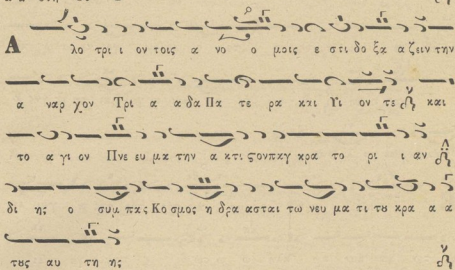 Α λο τρι ι ον τοις α νο ο μοις ε στι δο ξα α ζειν την
α ναρ χον Τρι α α δα Πα τε ρα και Υι ον τε και
το α γι ον Πνε ευ μα την α κτι ςον παγ κρα το ρι ι αν
δι ης ο συμ πας Κο σμος η δρα ασται τω νευ μα τι τȣ κρα α α
τȣς αυ τη ης